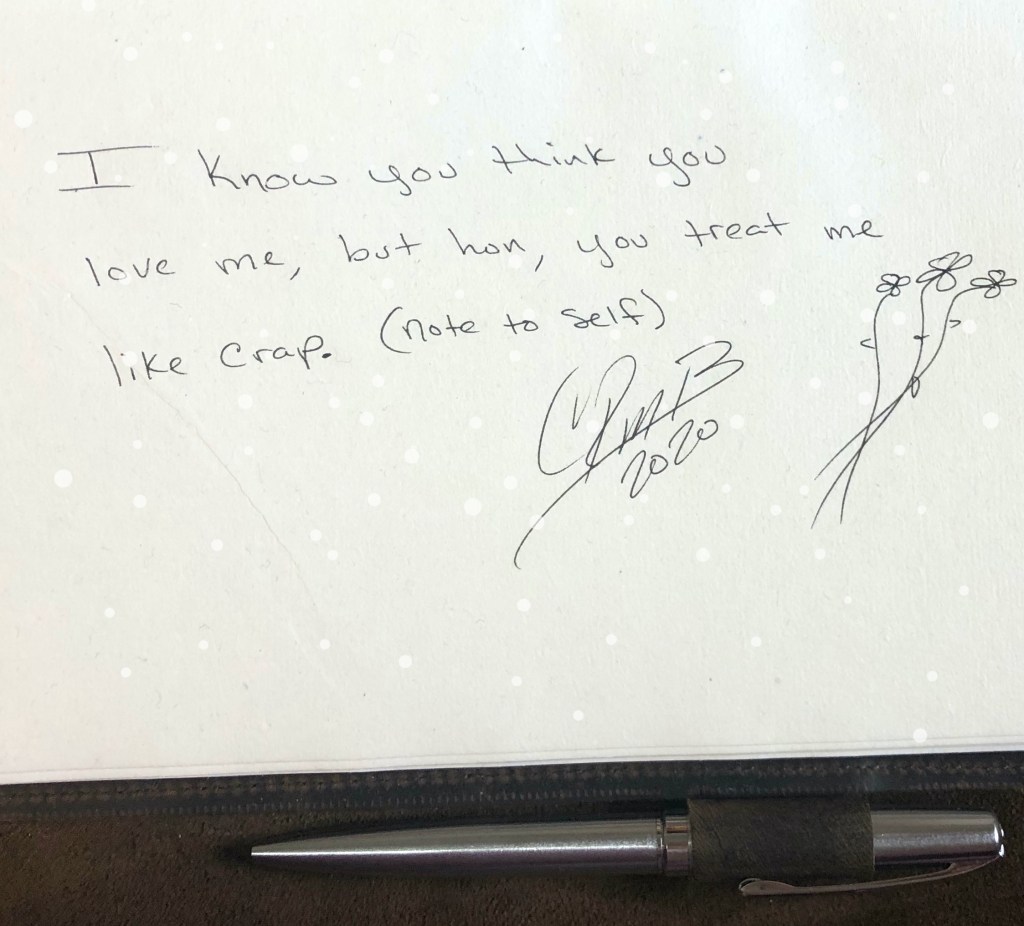 I know you think you
love me, but hon, you treat me
like crap. (note to self)
2020